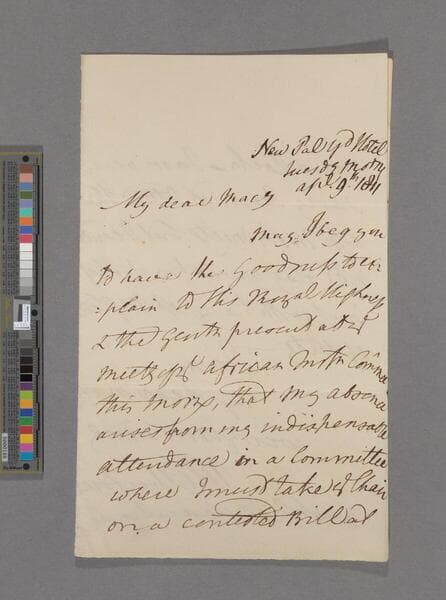 New Pal yd Hotel
Tuesdy Mrng
apl. 9th 1811
My dear Macy
may I beg you
to have the Goodness to ex=
=plain to His Royal Highness
& the Gentn present at ye
meetg of ye African Instn Comme
this morng, that my absence
arises from my indispensable
attendance in a Committee
where I must take ye Chair
on a contested Bill at